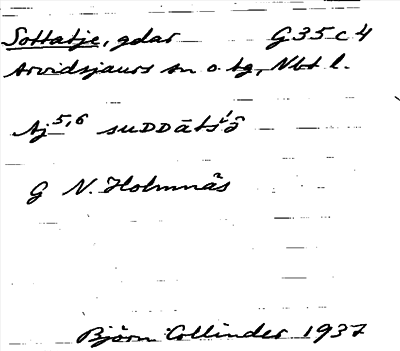 Sottatje, gdar G 35 c 4
Arvidsjaurs sn o. tg, Nbt l.
Aj 5,6 suDDātśə̑
G N. Holmnäs
Björn Collinder 1937